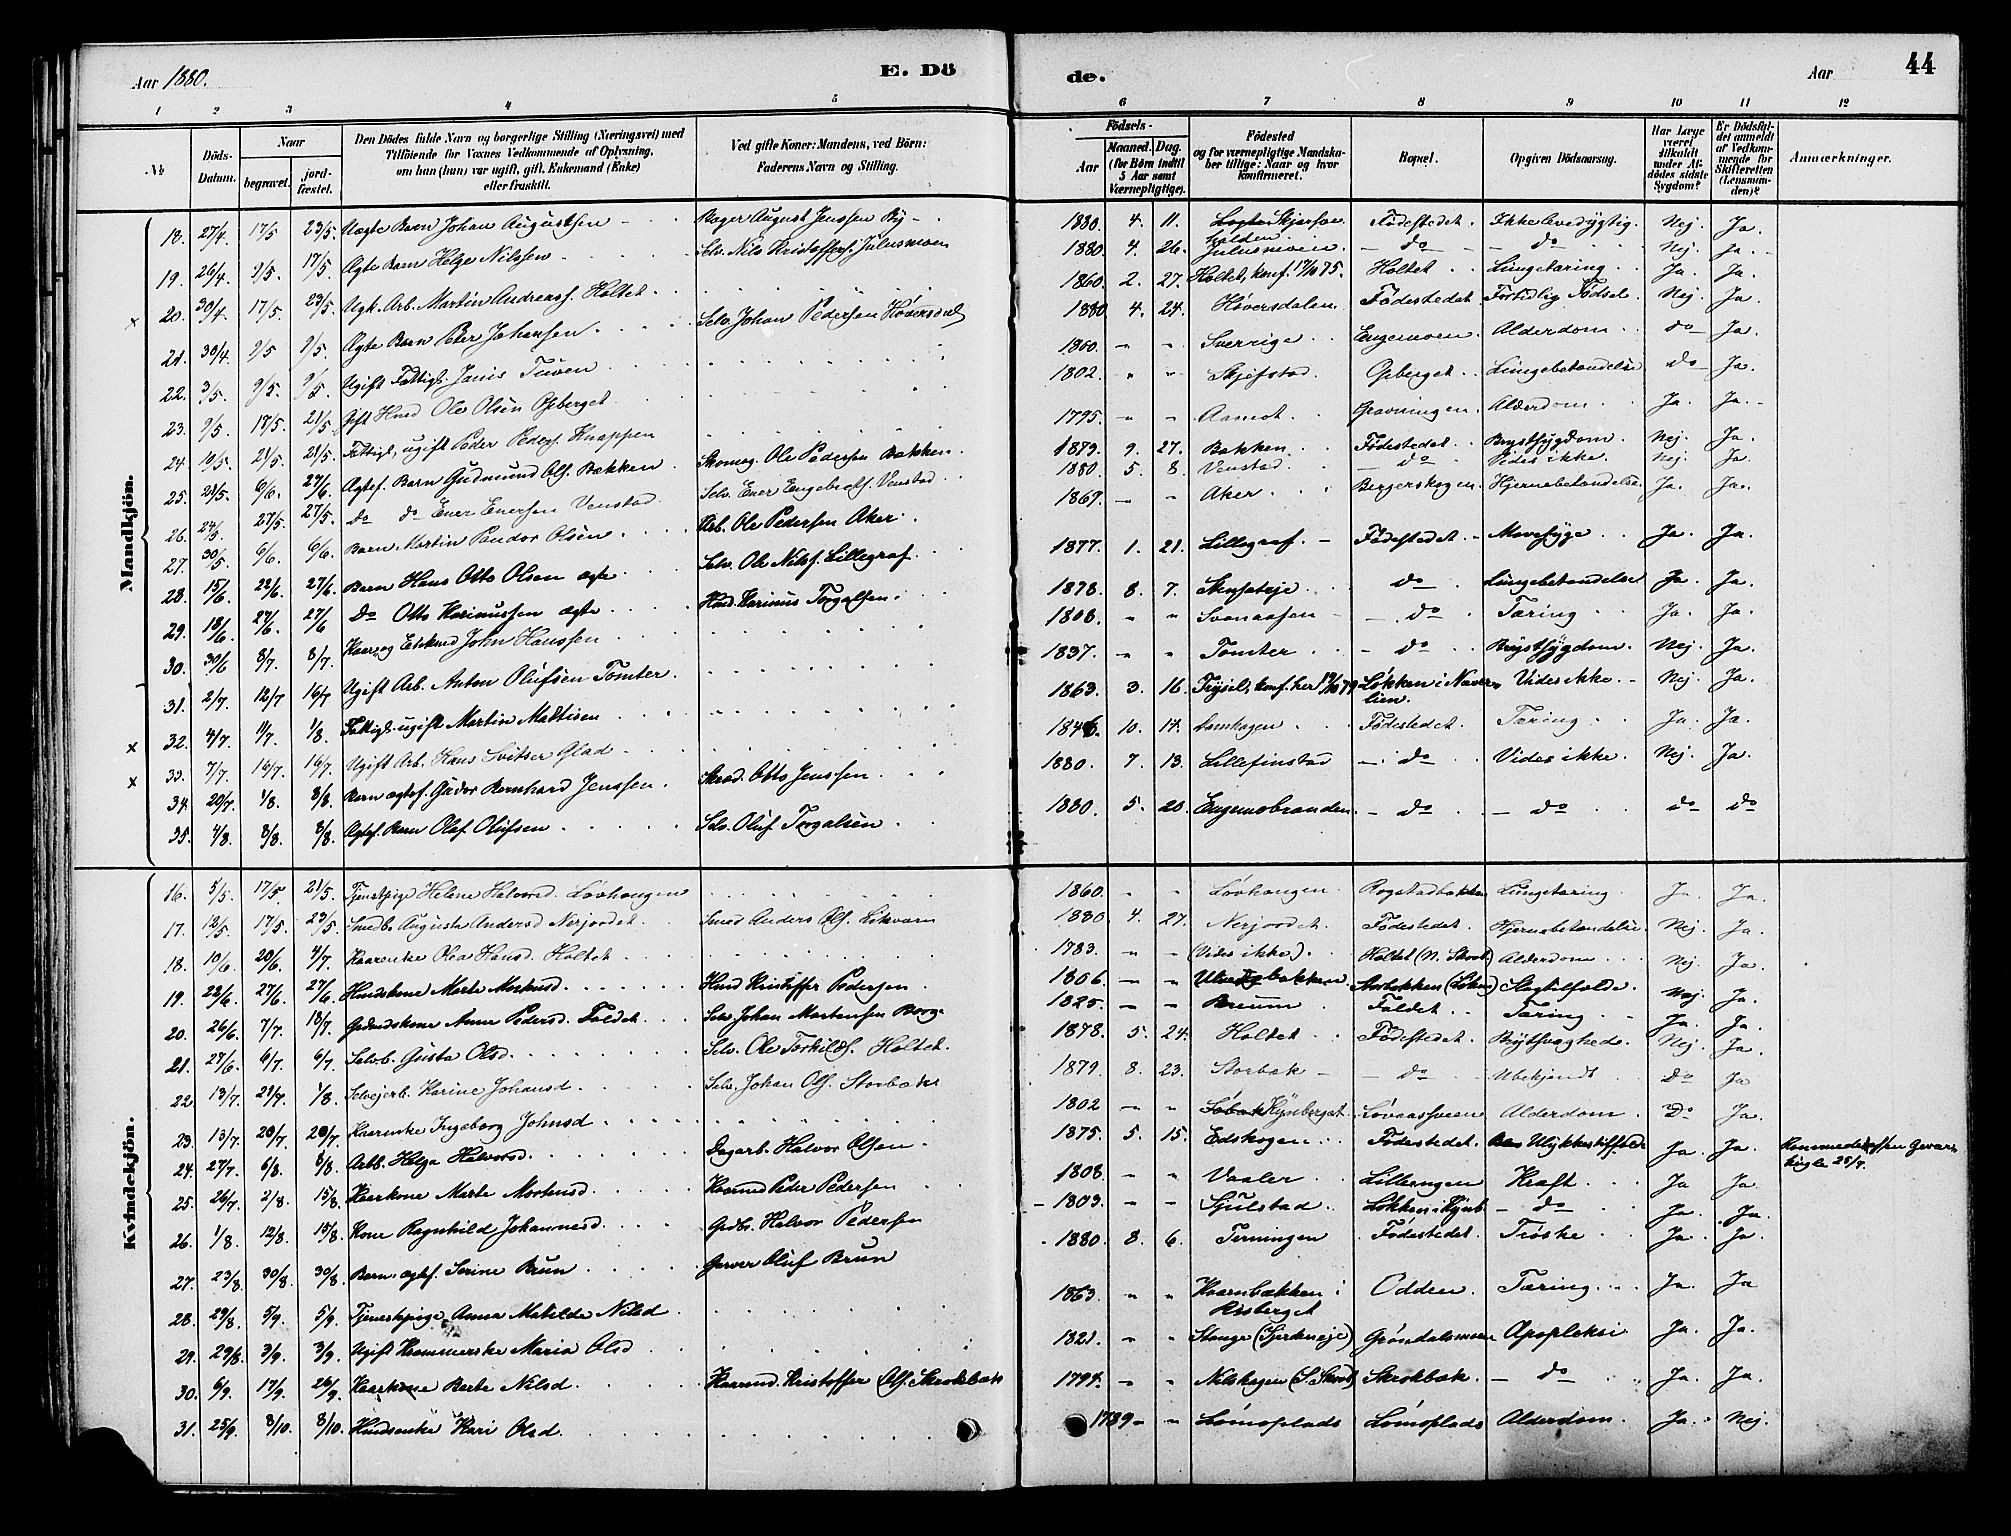 Aar 1880. E. Dö de. Aar 44
1 2 3 4 5 6 7 8 9 10 11 12
No
Döds-Datum.
Naar
begravet. jordfæstet.
Den Dödes fulde Navn og borgerlige Stilling (Næringsvei) med
Tilföiende for Voxnes Vedkommende af Oplysning,
om han (hun) var ugift, gift, Enkemand (Enke)
eller fraskilt.
Ved gifte Koner: Mandens, ved Börn:
Faderens Navn og Stilling.
Födsels-
Aar Maaned. Dag.
(for Börn indtil
5 Aar samt
Værnepligtige).
Födested
og for værnepligtige Mandskaber tillige: Naar og hvor
konfirmeret.
Bopæl.
Opgiven Dödsaarsag.
Har Læge
været
tilkaldt
under Afdödes sidste
Sygdom?
Er Dödsfaldet anmeldt
af Vedkommende for
Skifteretten
(Lensmanden)?
Anmærkninger.
Mandkjön.
18. 27/4 17/5 23/5 Uægte Barn Johan Augustsen Bager August Jenssen By 1880. 4. 11. Födestedet. Ikke levedygtig. Nej. Ja.
19. 26/4 9/5 17/5 Ægte Barn Helge Nilssen Selv. Nils Kristoffers. Julusmoen 1880 4. 26. Julusmoen. do do Nej. Ja.
20. 30/4 17/5 23/5 Ugft. Arb. Martin Andreass. Holtet 1860. 2. 27. Holtet, konf. 17/10 75. Holtet Lungetæring Ja. Ja.
21. 30/4 9/5 9/5 Ægte Barn Peter Johansen Selv. Johan Pedersen Höversdal 1880 4. 24. Höversdalen Födestedet Fortidlig Födsel Nej. Ja.
22. 3/5 9/5 9/5 Ugift Fattigl. 1800. Sverrige Engemoen. Alderdom do Ja.
23. 9/5 18/5 21/5 Gift Hmd Ole Olsen Opberget 1802. Skjefstad. Opberget Lungebetændelse do Ja.
24. 10/5 21/5 21/5 Fattigl, ugift Peder Peders. Knappen 1795. Aamot Gravningen. Alderdom Ja. Ja.
25. 28/5 6/6. 27/6 Ægtef. Barn Gudmund Ols. Bækken Skomag. Ole Pedersen Bækken. 1879. 9. 27. Bækken Födestedet Brystsygdom. Nej. Ja.
26. 24/5. 27/5. 27/5. do do Ener Enersen Venstad Selv. Ener Engebrets. Venstad 1880 5. 8. Venstad. do Vides ikke. Nej. Ja.
27. 30/5 6/6. 6/6. Barn Martin Pandor Olsen Arb. Ole Pedersen Aker. 1869. Aker Bergerskogen. Hjernebetændelse. Ja. Ja.
28. 15/6 22/6. 27/6. Barn Hans Otto Olsen ægte Selv. Ole Nilss. Lillegraf 1877. 1. 21. Lillegraf. Födestedet. Mavesyge Ja. Ja.
29. 18/6 27/6. 27/6 do Otto Karinussen ægte Hmd. Karinus Torgalsen. 1878. 8. 7. do Lungebetændelse Ja. Ja.
30. 30/6 8/7. 8/7. Kaar og Enkmd John Hanssen 1808. Svenaasen do Tæring Ja. Ja.
31. 2/7. 12/7 16/7 Ugift Arb. Anton Olufsen Tomter 1837. Tomter do Brystsygdom. Nej. Ja.
32. 4/7. 11/7. 1/8. Fattigl. ugift Martin Mattisen 1863. 3. 16. Trysil, konf. her 12/10 79 Lökken i Naverlien. Vides ikke. Nej. Ja.
33. 7/7. 16/7. 16/7. Ugift Arb. Hans Svitser Glad 1846. 10. 14. Födestedet. Tæring. Ja. Ja.
34. 20/7. 1/8. 8/8. Barn ægtef. Gudor Bernhard Jenssen. Skrad. Otto Jenssen. 1880. 7. 13. Lillefinstad do Vides ikke. Nej. Ja.
35. 4/8. 8/8. 8/8. Ægtef. Barn Olaf Olufsen Selv. Oluf Torgalsen 1880. 5. 20. Engemobranden. do do do do
Kvindekjön.
16. 5/5. 17/5 21/5. Tjenstpige Helene Halvorsd. Lövhaugen 1860. Lövhaugen. Rogstadbakken Lungetæring. Ja Ja.
17. 12/5 17/5. 23/5. Smedb. Augusta Andersd Nerjordet Smed Anders Ols. Likvern 1880. 4. 27. Nerjordet. Födestedet. Hjernebetændelse. Nej. Ja.
18. 10/6. 20/6. 4/7. Kaarenke Olea Hansd. Holtet 1783. (Vides ikke). Holtet (N. Skovb) Alderdom Nej. Ja.
19. 22/6. 27/6 27/6. Hmdskone Marte Mortensd. Hmd Kristoffer Pedersen 1806 Storbekken Slagtilfælde. Nej. Ja.
20. 26/6. 7/7. 18/7. Grdmdskone Anne Pedersd. Faldet Selv. Johan Mortensen Borge 1825. Faldet Tæring Ja. Ja.
21. 27/6. 6/7. 6/7. Selvb. Gusta Olsd. Selv. Ole Torkilds. Holtet. 1878. 5. 24. Holtet Födestedet. Brystsvaghed. Nej. Ja.
22. 13/7. 21/7. 1/8. Selvejerb. Karine Johansd Selv. Johan Ols. Storbæk 1879. 8. 23. Storbæk do Ubekjendt do Ja
23. 13/7. 20/7. 20/7. Kaarenke Ingeborg Johnsd 1802 Kynberget. Lövaassveen Alderdom. do Ja.
24. 27/7. 6/8. 8/8. Arbb. Helga Halvorsd. Dagarb. Halvor Olsen 1875. 5. 15. Edskogen Födestedet. Ulykkestilfælde Ja. Ja.
25. 26/7. 2/8. 15/8. Kaarkone Marte Mortensd. Kaarmd Peder Pedersen 1808. Vaaler Lillerøngen Kræft Ja Ja.
26. 1/8. 12/8. 15/8. Kone Ragnhild Johannesd. Grdbr. Halvor Pedersen 1803. Gjulstad. Lökken i Kynb. do Ja. Ja.
27. 23/8. 30/8. 30/8. Barn, ægtef. Serine Brun Garver Oluf Brun 1880. 8. 6. Terningen Födestedet. Tröske Ja. Ja.
28. 29/8. 5/9. 5/9. Tjenestpige Anna Matilde Nilsd 1863. Kvernbækken i Risberget Odden. Tæring Ja. Ja
29. 29/8. 3/9. 3/9. Ugift Kræmmerske Maria Olsd 1821. Stange (Gjerdeneje) Gröndalsmoen Apopleksi Ja. Ja.
30. 6/9. 17/9. 26/9. Kaarkone Berte Nilsd. Kaarmd. Kristoffer Ols. Skrokbæk 1794. Nilskagen (S. Skovb) Skrokbæk. do Ja. Ja
31. 25/9. 8/10. 8/10. Hmdsenke Kari Olsd. 1789 Lömoplads Lömoplads Alderdom. Ja. Nej.